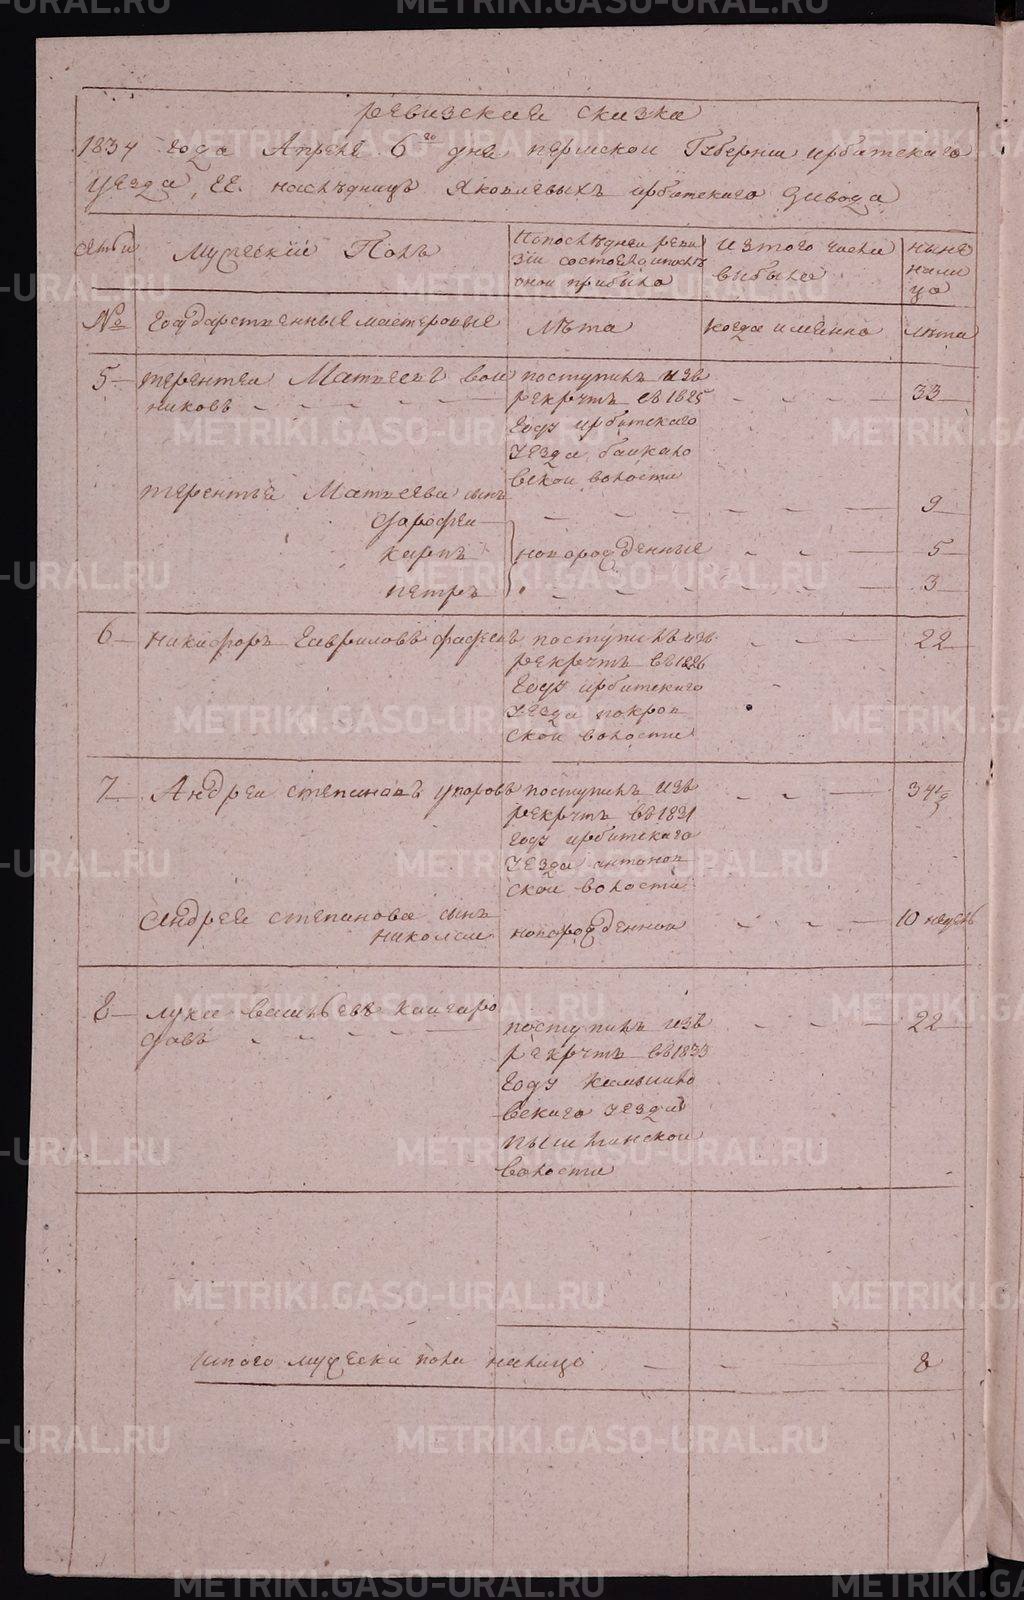 ревизская сказка
1834 года Апреля 6го дня пермской Губернии ирбитскаго
уезда, ГГ. наследниц Яковлевыхъ ирбитскаго завода
Мужескiй Полъ
Попоследнеи реви
зiи состояло и после
оной прибыло
Изтого числа
выбыло
ныне
нали
цо
№
Государственные мастеровые
лета
когда имянно
лета
5
терентеи Матвеевъ вои
никовъ
поступилъ изъ
рекрутъ въ 1825
году ирбитскаго
уезда баикало
вской волости
33
терентья Матвеева сынъ
дарофеи
9
карпъ
новорожденные
5
петръ
3
6
никифоръ Гавриловъ
поступилъ изъ
рекрутъ въ 1826
году ирбитскаго
уезда покров
ской волости
22
7
Андреи степановъ упоровъ
поступилъ изъ
рекрутъ въ 1831
году ирбитскаго
уезда антонов
ской волости
34
Андрея степанова сынъ
николаи
новорожденной
10 недель
8
лука васильевъ каигоро
довъ
поступилъ изъ
рекрутъ въ 1833
году камышло
вскаго уезда
пышминской
волости
22
Итого мужеска пола налицо
8
METRIKI.GASO-URAL.RU